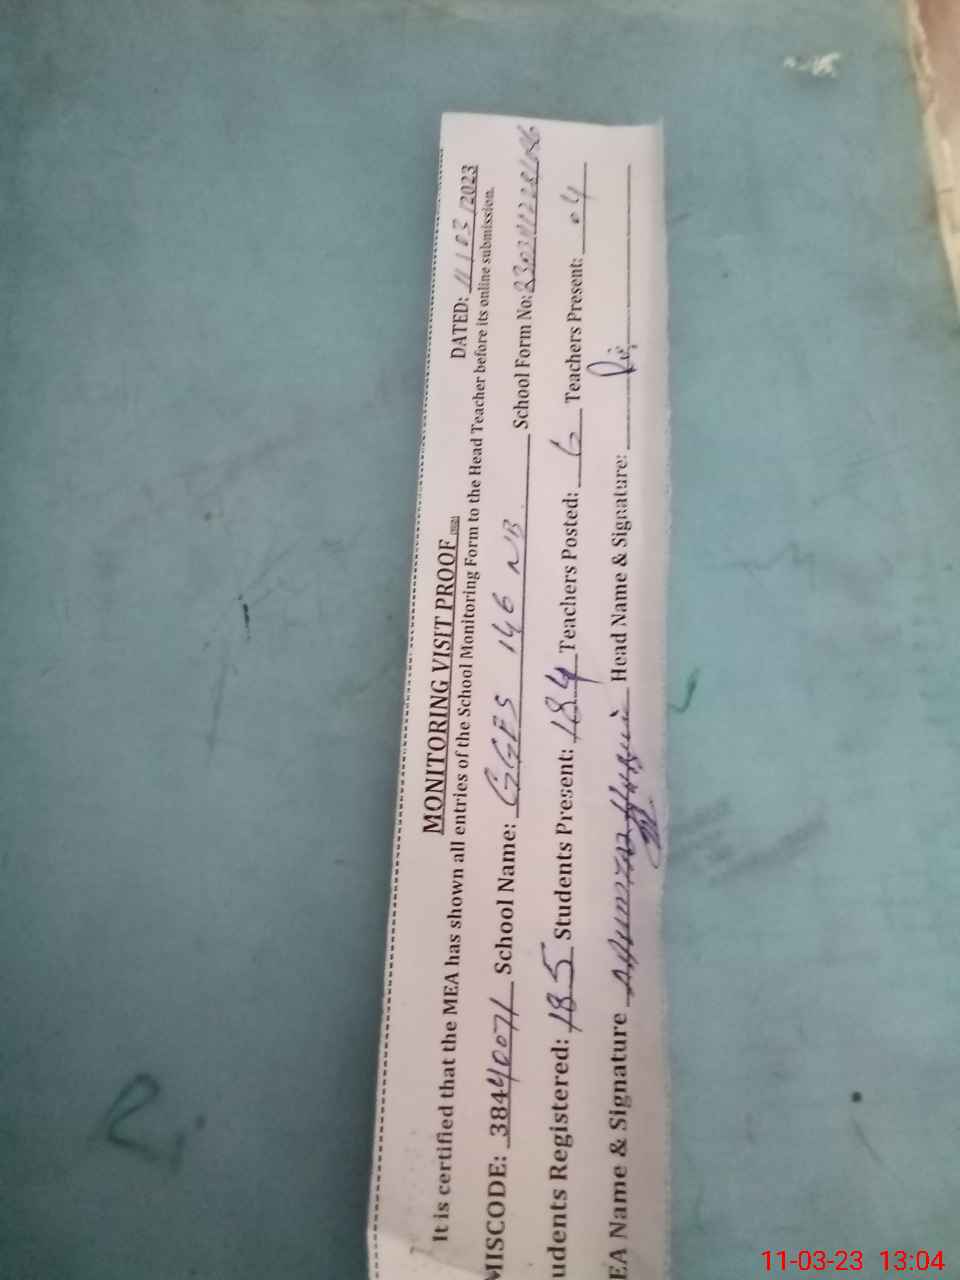 MONITORING VISIT PROOF
DATED: 11/03/2023
It is certified that the MEA has shown all entries of the School Monitoring Form to the Head Teacher before its online submission.
MISCODE: 38440071 School Name: GGES 146 NB School Form No:
udents Registered: 185 Students Present: 184 Teachers Posted: 6 Teachers Present: 04
EA Name & Signature Head Name & Signature:
11-03-23 13:04